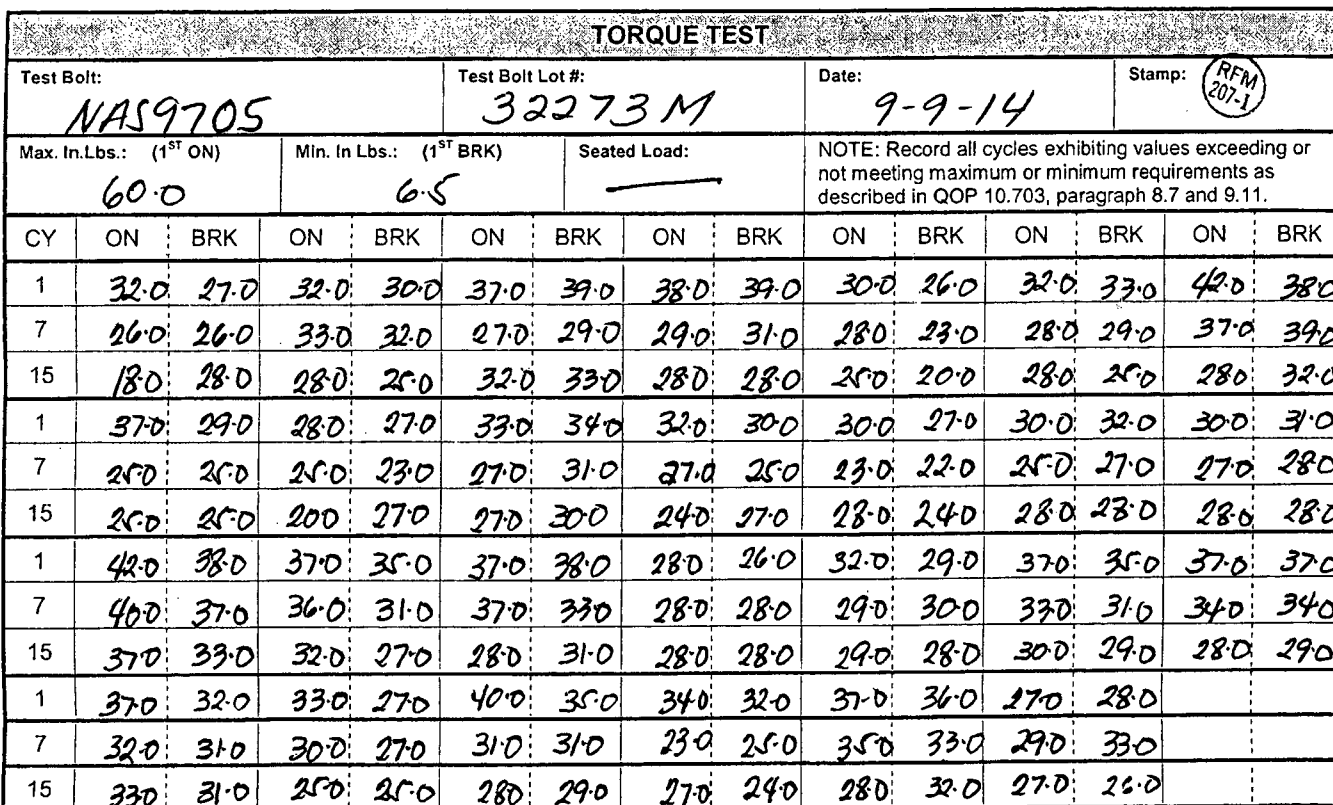 TORQUE TEST
Test Bolt: Test Bolt Lot #: Date: Stamp: RFM
NAS9705 32273 M 9-9-14 207-1
Max. In.Lbs.: (1ST ON) Min. In Lbs.: (1ST BRK) Seated Load: NOTE: Record all cycles exhibiting values exceeding or
not meeting maximum or minimum requirements as
60.0 6.5 — described in QOP 10.703, paragraph 8.7 and 9.11.
CY ON BRK ON BRK ON BRK ON BRK ON BRK ON BRK ON BRK
1 32.0 27.0 32.0 30.0 37.0 39.0 38.0 39.0 30.0 26.0 32.0 33.0 42.0 38.0
7 26.0 26.0 33.0 32.0 27.0 29.0 29.0 31.0 28.0 23.0 28.0 29.0 37.0 39.0
15 18.0 28.0 28.0 25.0 32.0 33.0 28.0 28.0 25.0 20.0 28.0 25.0 28.0 32.0
1 37.0 29.0 28.0 27.0 33.0 34.0 32.0 30.0 30.0 27.0 30.0 32.0 30.0 31.0
7 25.0 25.0 25.0 23.0 27.0 31.0 27.0 25.0 23.0 22.0 25.0 27.0 27.0 28.0
15 25.0 25.0 20.0 27.0 27.0 30.0 24.0 27.0 28.0 24.0 28.0 28.0 28.0
1 42.0 38.0 37.0 35.0 37.0 38.0 28.0 26.0 32.0 29.0 37.0 35.0 37.0 37.0
7 40.0 37.0 36.0 31.0 37.0 33.0 28.0 28.0 29.0 30.0 33.0 31.0 34.0 34.0
15 37.0 33.0 32.0 27.0 28.0 31.0 28.0 28.0 29.0 28.0 30.0 29.0 28.0 29.0
1 37.0 32.0 33.0 27.0 40.0 35.0 34.0 32.0 37.0 36.0 27.0 28.0
7 32.0 31.0 30.0 27.0 31.0 31.0 23.0 25.0 35.0 33.0 29.0 33.0
15 33.0 31.0 25.0 25.0 28.0 29.0 27.0 24.0 28.0 32.0 27.0 26.0